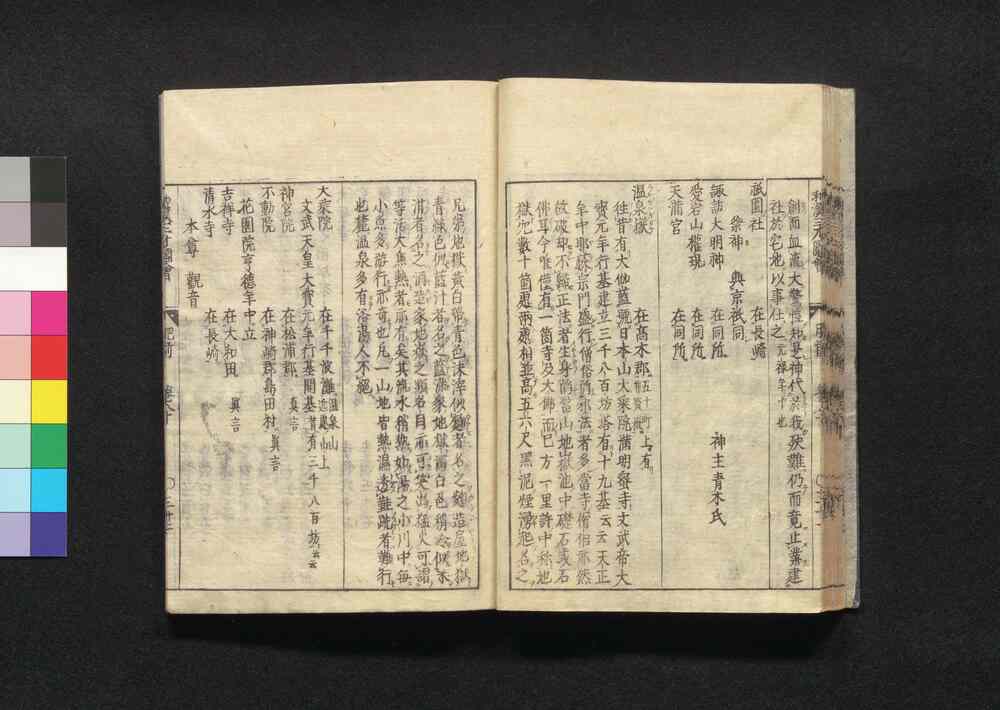 創而血流大驚懼知是神代於我殃難仍而竟止業建
社於宅地以事仕之 元禄年中也
祇園社 在長崎
祭神 與京祇同
諏訪大明神 在同所 神主青木氏
愛宕山權現 在同所
天龍宮 在同所
温泉嶽 在髙木郡 上有
往昔有大伽藍號日本山大乘院滿明密寺文武帝大
寳元年行基建立三千八百坊塔有十九基云云天正
年中耶蘇宗門盛行僧俗陷邪法者多當寺僧侶亦然
故破却不歸正法者生身陷當山地獄池中礎石或石
佛耳今唯僅有一箇寺及大佛而已方一里許中称地
獄処數十箇処兩処相並髙五六尺黑泥煙湧起名之
兄弟地獄黄白帶青色沫滓似麹者名之麹造屋地獄
青綠色似藍汁者名之藍染家地獄濁白色稍冷似米
泔者名之酒造家地獄之類名目亦可笑出猛火可謂
等活大焦熱者亦有矣其流水稍熱如湯之小川中毎
小魚多游行亦奇也凡一山地皆熱温透鞋跣者難行
也麓温泉多有浴湯人不絶
大乘院 在千千波灘 温泉山
文武天皇大寳元年行基開基昔有三千八百坊云云
神宮院 在松浦郡 真言
不動院 在神崎郡島田村 真言
花園院亨德年中立
吉祥寺 在大和田 真言
清水寺 在長崎
本尊 觀音